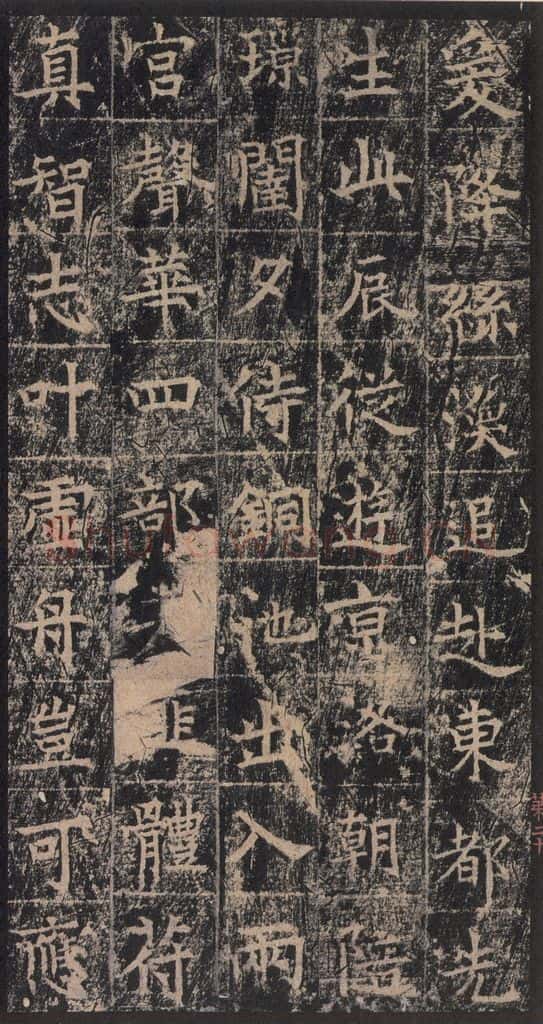 爰降絲渙追赴東都先
生此辰從遊京洛朝陪
琼闈夕侍銅池出入兩
宮聲華四部體符
真智志叶虛舟豈可應